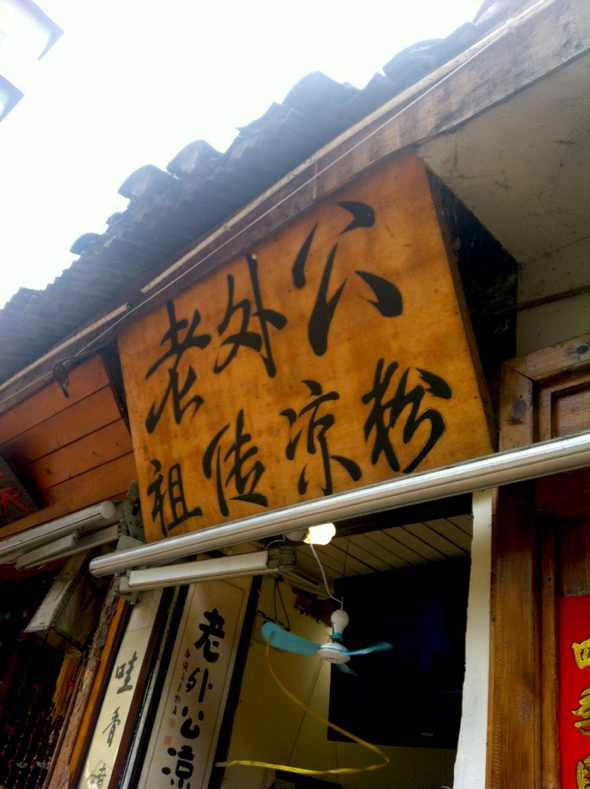 老外公
祖传凉粉
老外公凉
哇
四季